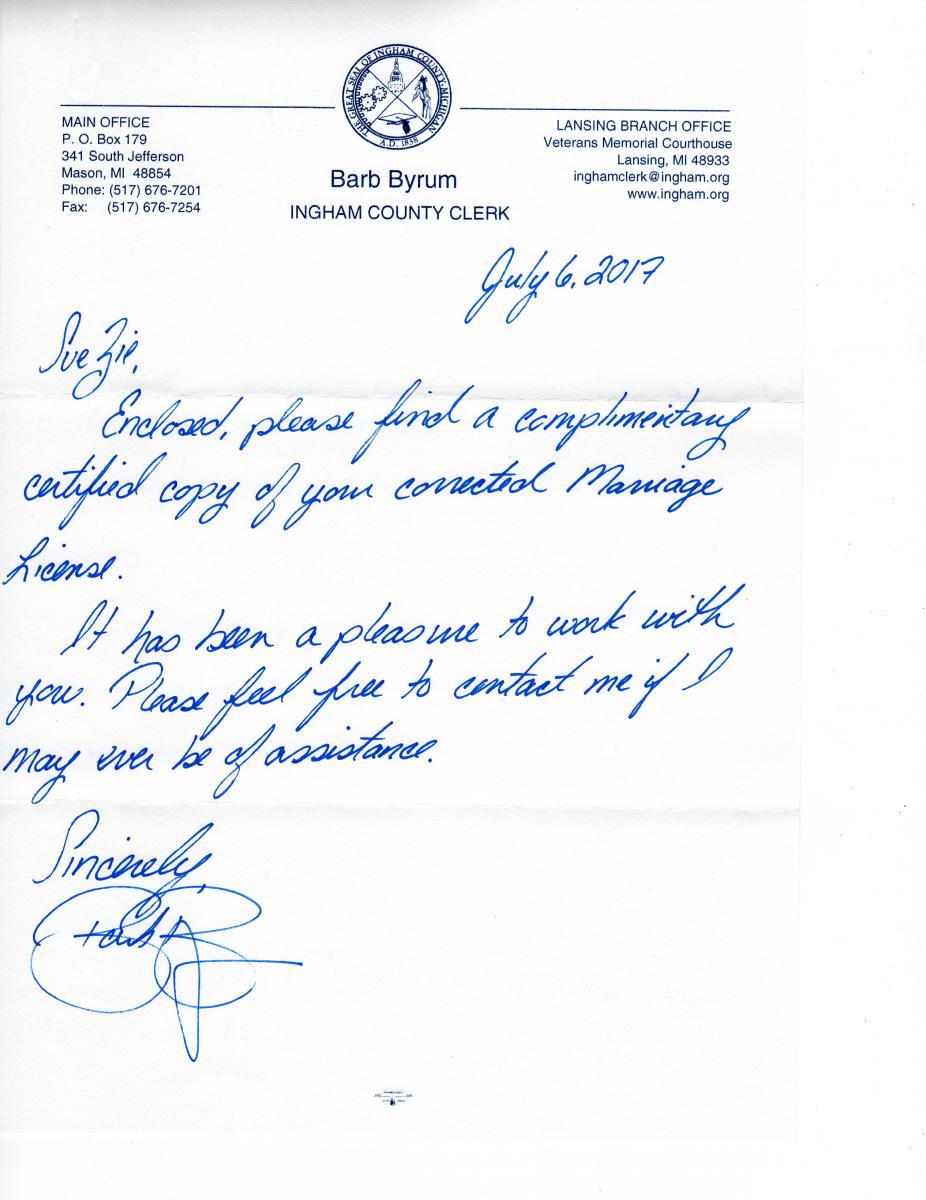 THE GREAT SEAL OF INGHAM COUNTY, MICHIGAN
A.D. 1838
MAIN OFFICE
P. O. Box 179
341 South Jefferson
Mason, MI 48854
Phone: (517) 676-7201
Fax: (517) 676-7254
Barb Byrum
INGHAM COUNTY CLERK
LANSING BRANCH OFFICE
Veterans Memorial Courthouse
Lansing, MI 48933
inghamclerk@ingham.org
www.ingham.org
July 6, 2017
Sue Zie,
Enclosed, please find a complimentary
certified copy of your corrected Marriage
License.
It has been a pleasure to work with
you. Please feel free to contact me if I
may ever be of assistance.
Sincerely,